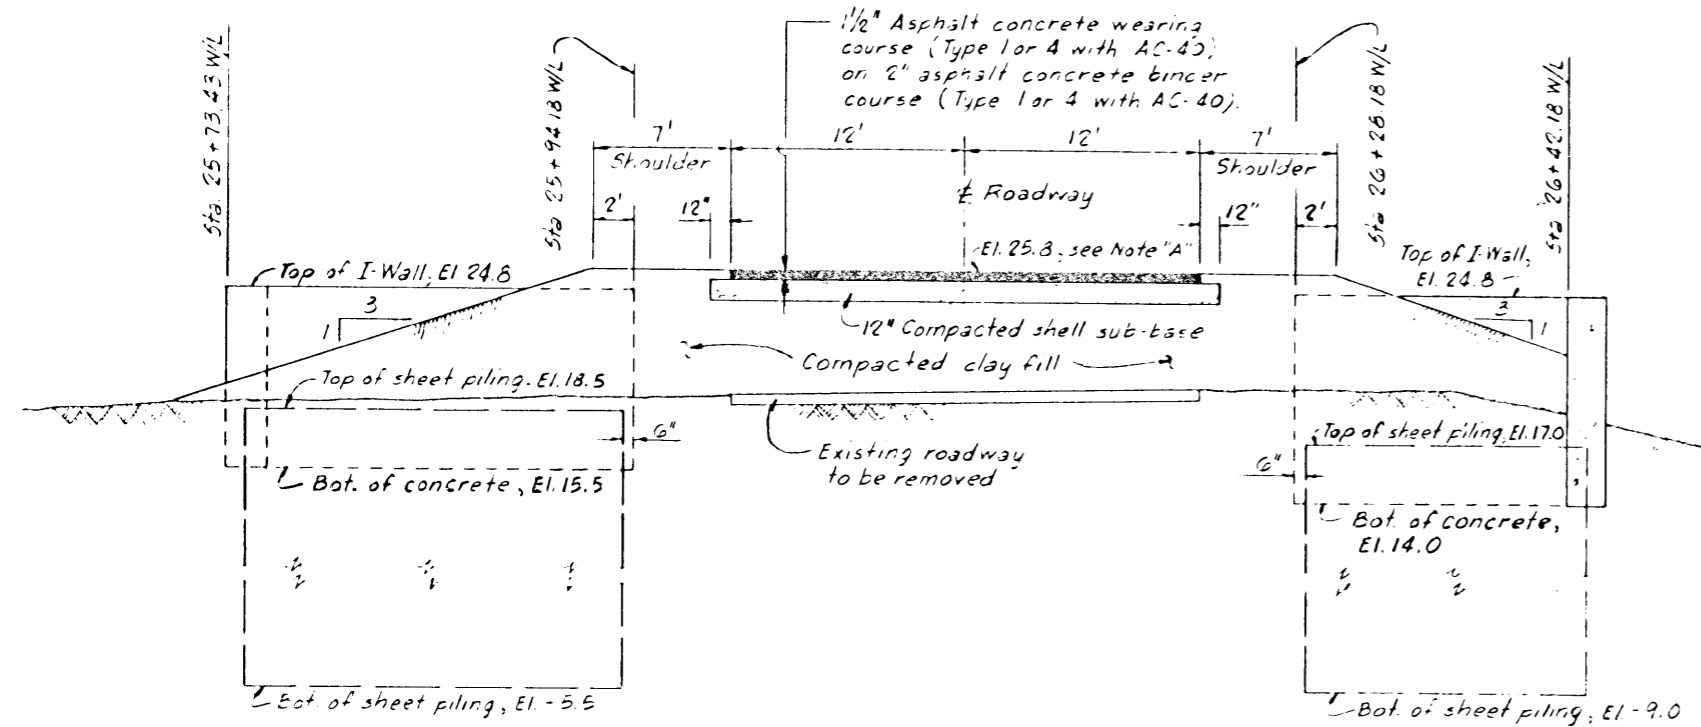 1½" Asphalt concrete wearing
course (Type 1 or 4 with AC-40)
on 2" asphalt concrete bincer
course (Type 1 or 4 with AC-40).
Sta. 25+73.43 W/L
Sta 25+94.18 W/L
Sta 26+28.18 W/L
Sta 26+42.18 W/L
7'
12'
12'
7'
Shoulder
Shoulder
℄ Roadway
2'
12"
12"
2'
El. 25.8, see Note "A"
Top of I-Wall, El. 24.8
Top of I-Wall,
El. 24.8
3
1
3
1
12" Compacted shell sub-base
Compacted clay fill
Top of sheet piling. El. 18.5
6"
Existing roadway
to be removed
Top of sheet piling, El. 17.0
6"
Bot. of concrete, El. 15.5
Bot. of concrete,
El. 14.0
Bot. of sheet piling, El. -5.5
Bot. of sheet piling, El. -9.0